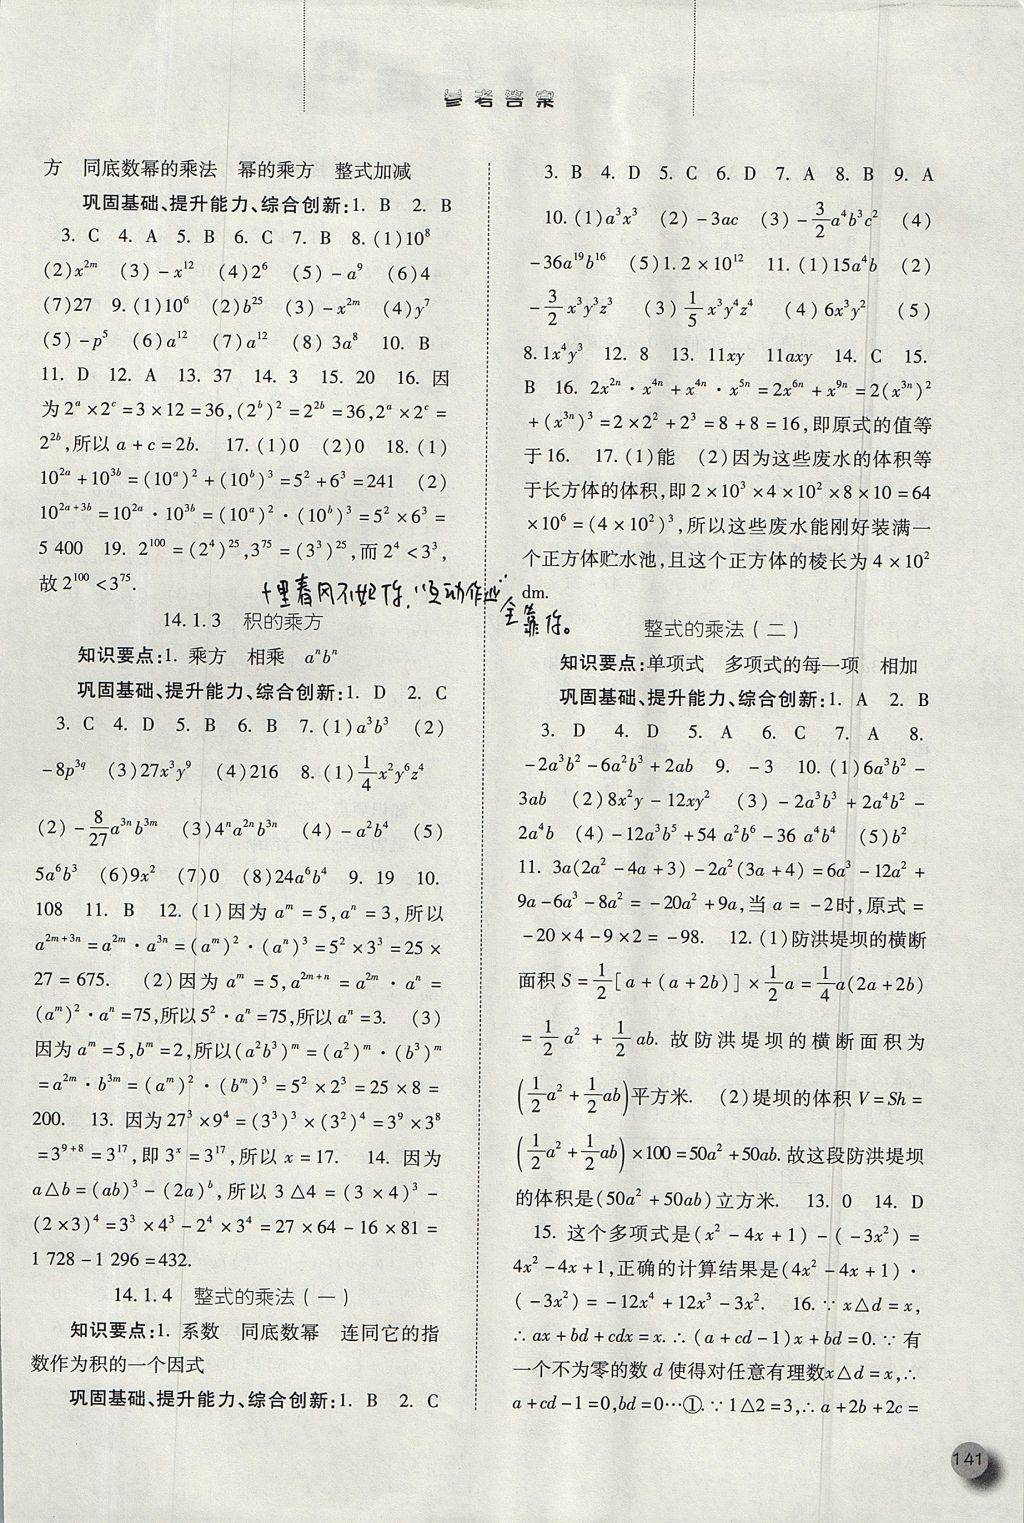 参考答案
方 同底数幂的乘法 幂的乘方 整式加减
巩固基础、提升能力、综合创新:1. B 2. B
3. C 4. A 5. B 6. C 7. B 8. (1)10⁸
(2)x²ᵐ (3)-x¹² (4)2⁶ (5)-a⁹ (6)4
(7)27 9. (1)10⁶ (2)b²⁵ (3)-x²ᵐ (4)y⁷
(5)-p⁵ (6)a¹² (7)a¹² (8)3a⁸ 10. B
11. D 12. A 13. 37 14. 3 15. 20 16. 因
为2ᵃ×2ᶜ=3×12=36,(2ᵇ)²=2²ᵇ=36,2ᵃ×2ᶜ=
2²ᵇ,所以a+c=2b. 17. (1)0 (2)0 18. (1)
10²ᵃ+10³ᵇ=(10ᵃ)²+(10ᵇ)³=5²+6³=241 (2)
10²ᵃ⁺³ᵇ=10²ᵃ·10³ᵇ=(10ᵃ)²·(10ᵇ)³=5²×6³=
5 400 19. 2¹⁰⁰=(2⁴)²⁵,3⁷⁵=(3³)²⁵,而2⁴<3³,
故2¹⁰⁰<3⁷⁵.
14.1.3 积的乘方
知识要点:1. 乘方 相乘 aⁿbⁿ
巩固基础、提升能力、综合创新:1. D 2. C
3. C 4. D 5. B 6. B 7. (1)a³b³ (2)
-8p³q (3)27x³y⁹ (4)216 8. (1)1/4x²y⁶z⁴
(2)-8/27a³ⁿb³ᵐ (3)4ⁿa²ⁿb³ⁿ (4)-a²b⁴ (5)
5a⁶b³ (6)9x² (7)0 (8)24a⁶b⁴ 9. 19 10.
108 11. B 12. (1)因为aᵐ=5,aⁿ=3,所以
a²ᵐ⁺³ⁿ=a²ᵐ·a³ⁿ=(aᵐ)²·(aⁿ)³=5²×3³=25×
27=675. (2)因为aᵐ=5,a²ᵐ⁺ⁿ=a²ᵐ·aⁿ=
(aᵐ)²·aⁿ=75,所以5²·aⁿ=75,所以aⁿ=3. (3)
因为aᵐ=5,bᵐ=2,所以(a²b³)ᵐ=(a²)ᵐ·(b³)ᵐ
=a²ᵐ·b³ᵐ=(aᵐ)²·(bᵐ)³=5²×2³=25×8=
200. 13. 因为27³×9⁴=(3³)³×(3²)⁴=3⁹×3⁸
=3⁹⁺⁸=3¹⁷,即3ˣ=3¹⁷,所以x=17. 14. 因为
a△b=(ab)³-(2a)ᵇ,所以3△4=(3×4)³-
(2×3)⁴=3³×4³-2⁴×3⁴=27×64-16×81=
1 728-1 296=432.
14.1.4 整式的乘法(一)
知识要点:1. 系数 同底数幂 连同它的指
数作为积的一个因式
巩固基础、提升能力、综合创新:1. B 2. C
3. B 4. D 5. C 6. D 7. A 8. B 9. A
10. (1)a³x³ (2)-3ac (3)-3/2a⁴b³c² (4)
-36a¹⁹b¹⁶ (5)1.2×10¹² 11. (1)15a⁴b (2)
-3/2x³y³z³ (3)1/5x³y⁴z⁴ (4)6x³y² (5)
8.1x⁴y³ 12. 8 13. 11xy 11axy 14. C 15.
B 16. 2x²ⁿ·x⁴ⁿ+x⁴ⁿ·x⁵ⁿ=2x⁶ⁿ+x⁹ⁿ=2(x³ⁿ)²
+(x³ⁿ)³=2×2²+2³=8+8=16,即原式的值等
于16. 17. (1)能 (2)因为这些废水的体积等
于长方体的体积,即2×10³×4×10²×8×10=64
×10⁶=(4×10²)³,所以这些废水能刚好装满一
个正方体贮水池,且这个正方体的棱长为4×10²
dm.
十里春风不如你,"互动作业"
全靠你。
整式的乘法(二)
知识要点:单项式 多项式的每一项 相加
巩固基础、提升能力、综合创新:1. A 2. B
3. D 4. D 5. A 6. C 7. A 8.
-2a³b²-6a²b³+2ab 9. -3 10. (1)6a³b²-
3ab (2)8x²y-12xy² (3)-2a³b³+2a⁴b²-
2a⁴b (4)-12a³b⁵+54a²b⁶-36a⁴b⁴ (5)b²
11. 3a(2a²-4a+3)-2a²(3a+4)=6a³-12a²+
9a-6a³-8a²=-20a²+9a,当a=-2时,原式=
-20×4-9×2=-98. 12. (1)防洪堤坝的横断
面积S=1/2[a+(a+2b)]×1/2a=1/4a(2a+2b)
=1/2a²+1/2ab. 故防洪堤坝的横断面积为
(1/2a²+1/2ab)平方米. (2)堤坝的体积V=Sh=
(1/2a²+1/2ab)×100=50a²+50ab. 故这段防洪堤坝
的体积是(50a²+50ab)立方米. 13. 0 14. D
15. 这个多项式是(x²-4x+1)-(-3x²)=
4x²-4x+1,正确的计算结果是(4x²-4x+1)·
(-3x²)=-12x⁴+12x³-3x². 16. ∵x△d=x,
∴ax+bd+cdx=x. ∴(a+cd-1)x+bd=0. ∵有
一个不为零的数d使得对任意有理数x△d=x,∴
a+cd-1=0,bd=0…①. ∵1△2=3,∴a+2b+2c=
141